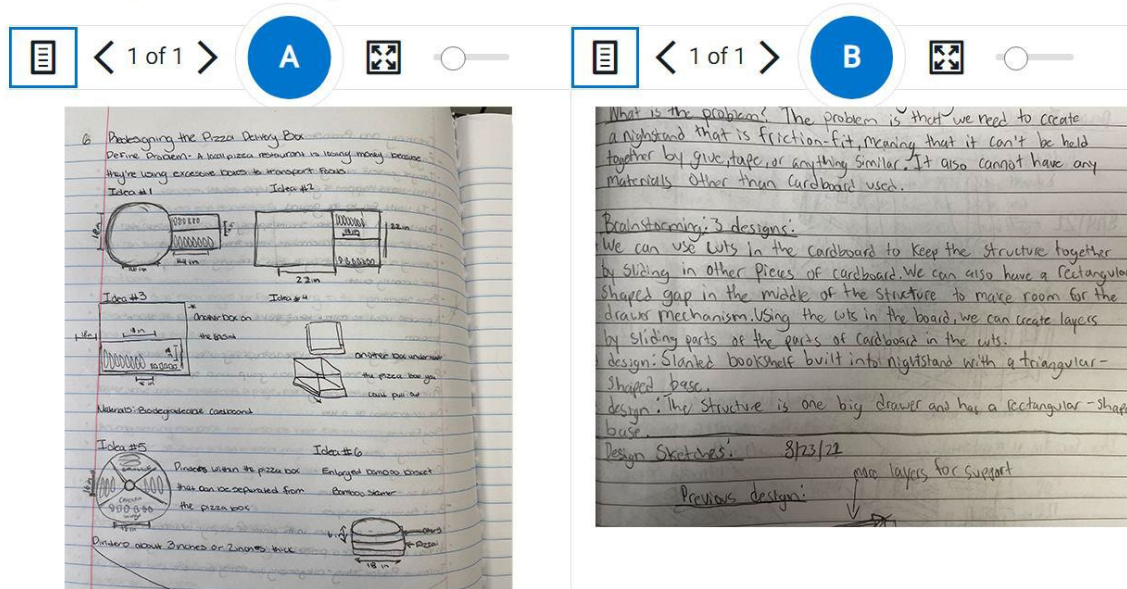 1 of 1
A
1 of 1
B
6 Redesigning the Pizza Delivery Box
Define Problem- A local pizza restaurant is losing money because
they're using excessive boxes to transport foods.
Idea #1
Idea #2
18in
14 in
22in
22in
Idea #3
Idea #4
another box on
the board
18in
another box underneath
the pizza box you
could pull out
Materials: Biodegradable cardboard
Idea #5
Idea #6
Dividers within the pizza box
that can be separated from
the pizza box
Enlarged bamboo basket
Bamboo steamer
Dividers about 3 inches or 2 inches thick
18 in
What is the problem? The problem is that we need to create
a nighstand that is friction-fit, meaning that it can't be held
together by glue, tape, or anything similar. It also cannot have any
materials other than cardboard used.
Brainstorming: 3 designs:
We can use cuts in the cardboard to keep the structure together
by sliding in other pieces of cardboard. We can also have a rectangular
shaped gap in the middle of the structure to make room for the
drawer mechanism. Using the cuts in the board, we can create layers
by sliding parts of the parts of cardboard in the cuts.
design: Slanted bookshelf built into nightstand with a triangular-
shaped base.
design: The structure is one big drawer and has a rectangular-shap
base.
Design Sketches: 8/23/22
more layers for support
Previous design: